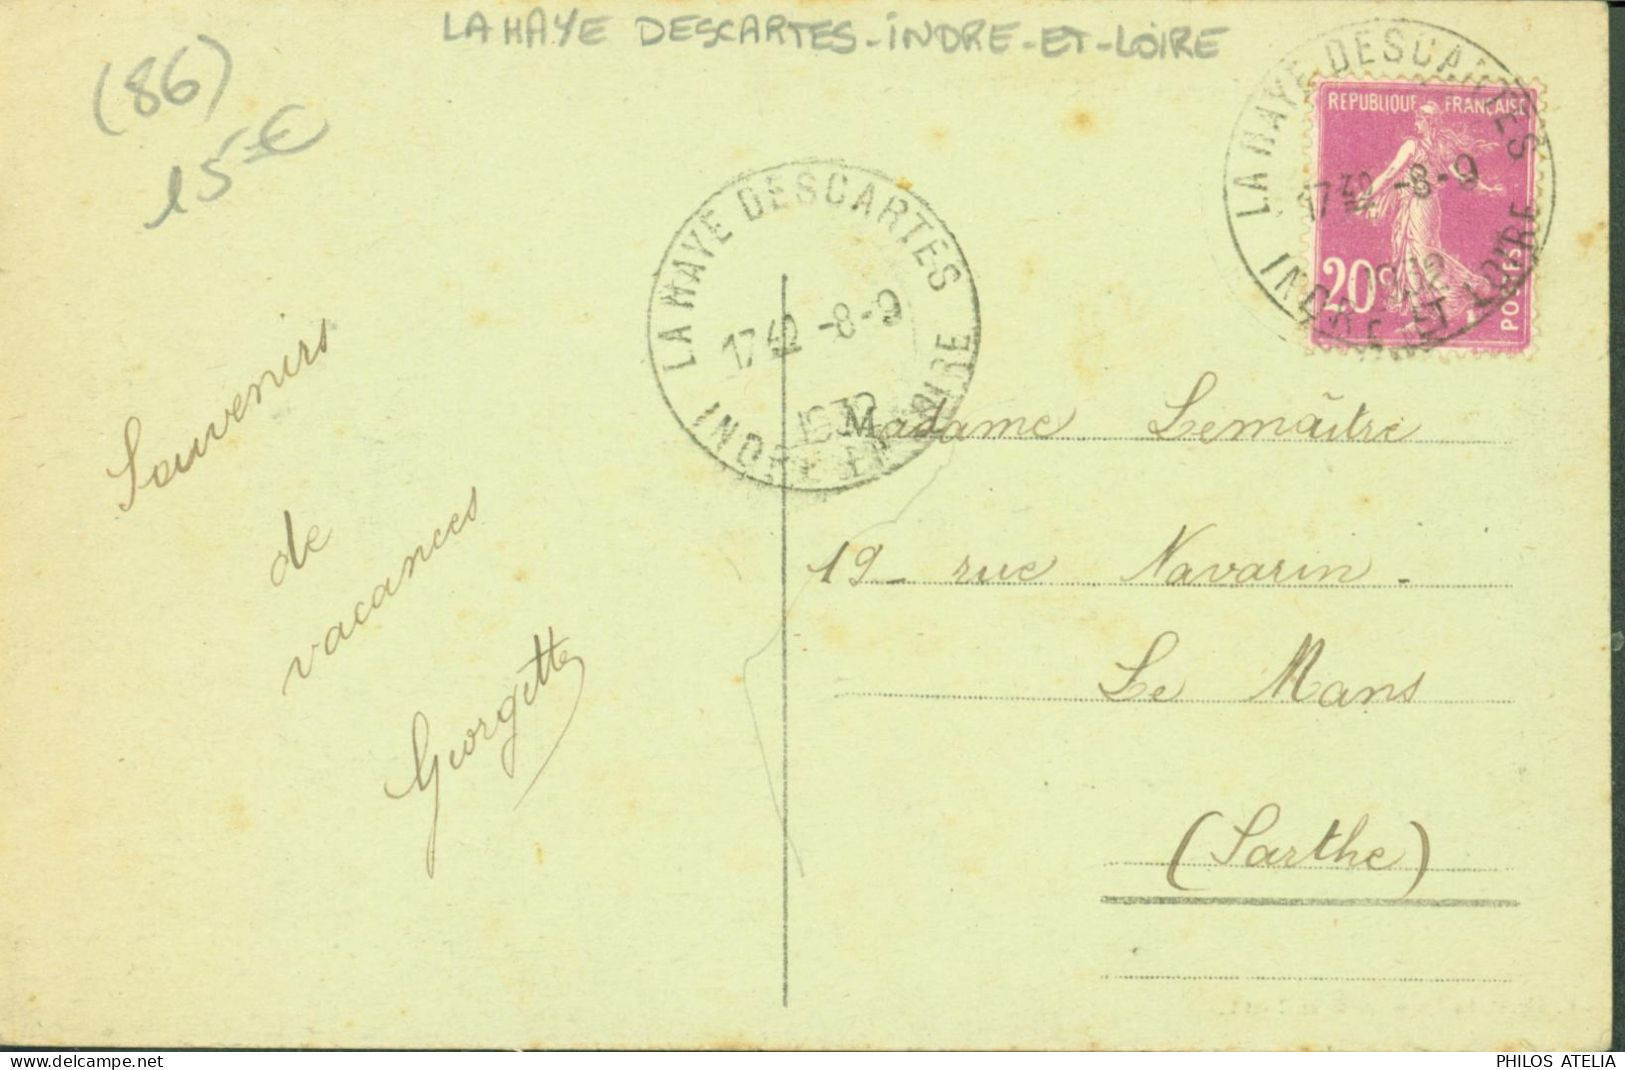 LA HAYE DESCARTES-INDRE-ET-LOIRE
(86)
15€
LA HAYE DESCARTES
1742 -8-9
1932
INDRE ET LOIRE
LA HAYE DESCARTES
-8-9
INDRE ET LOIRE
REPUBLIQUE FRANÇAISE
20c
POSTES
Souvenirs
de
vacances
Georgette
Madame Lemaître
19 - rue Navarin -
Le Mans
(Sarthe)
PHILOS ATELIA